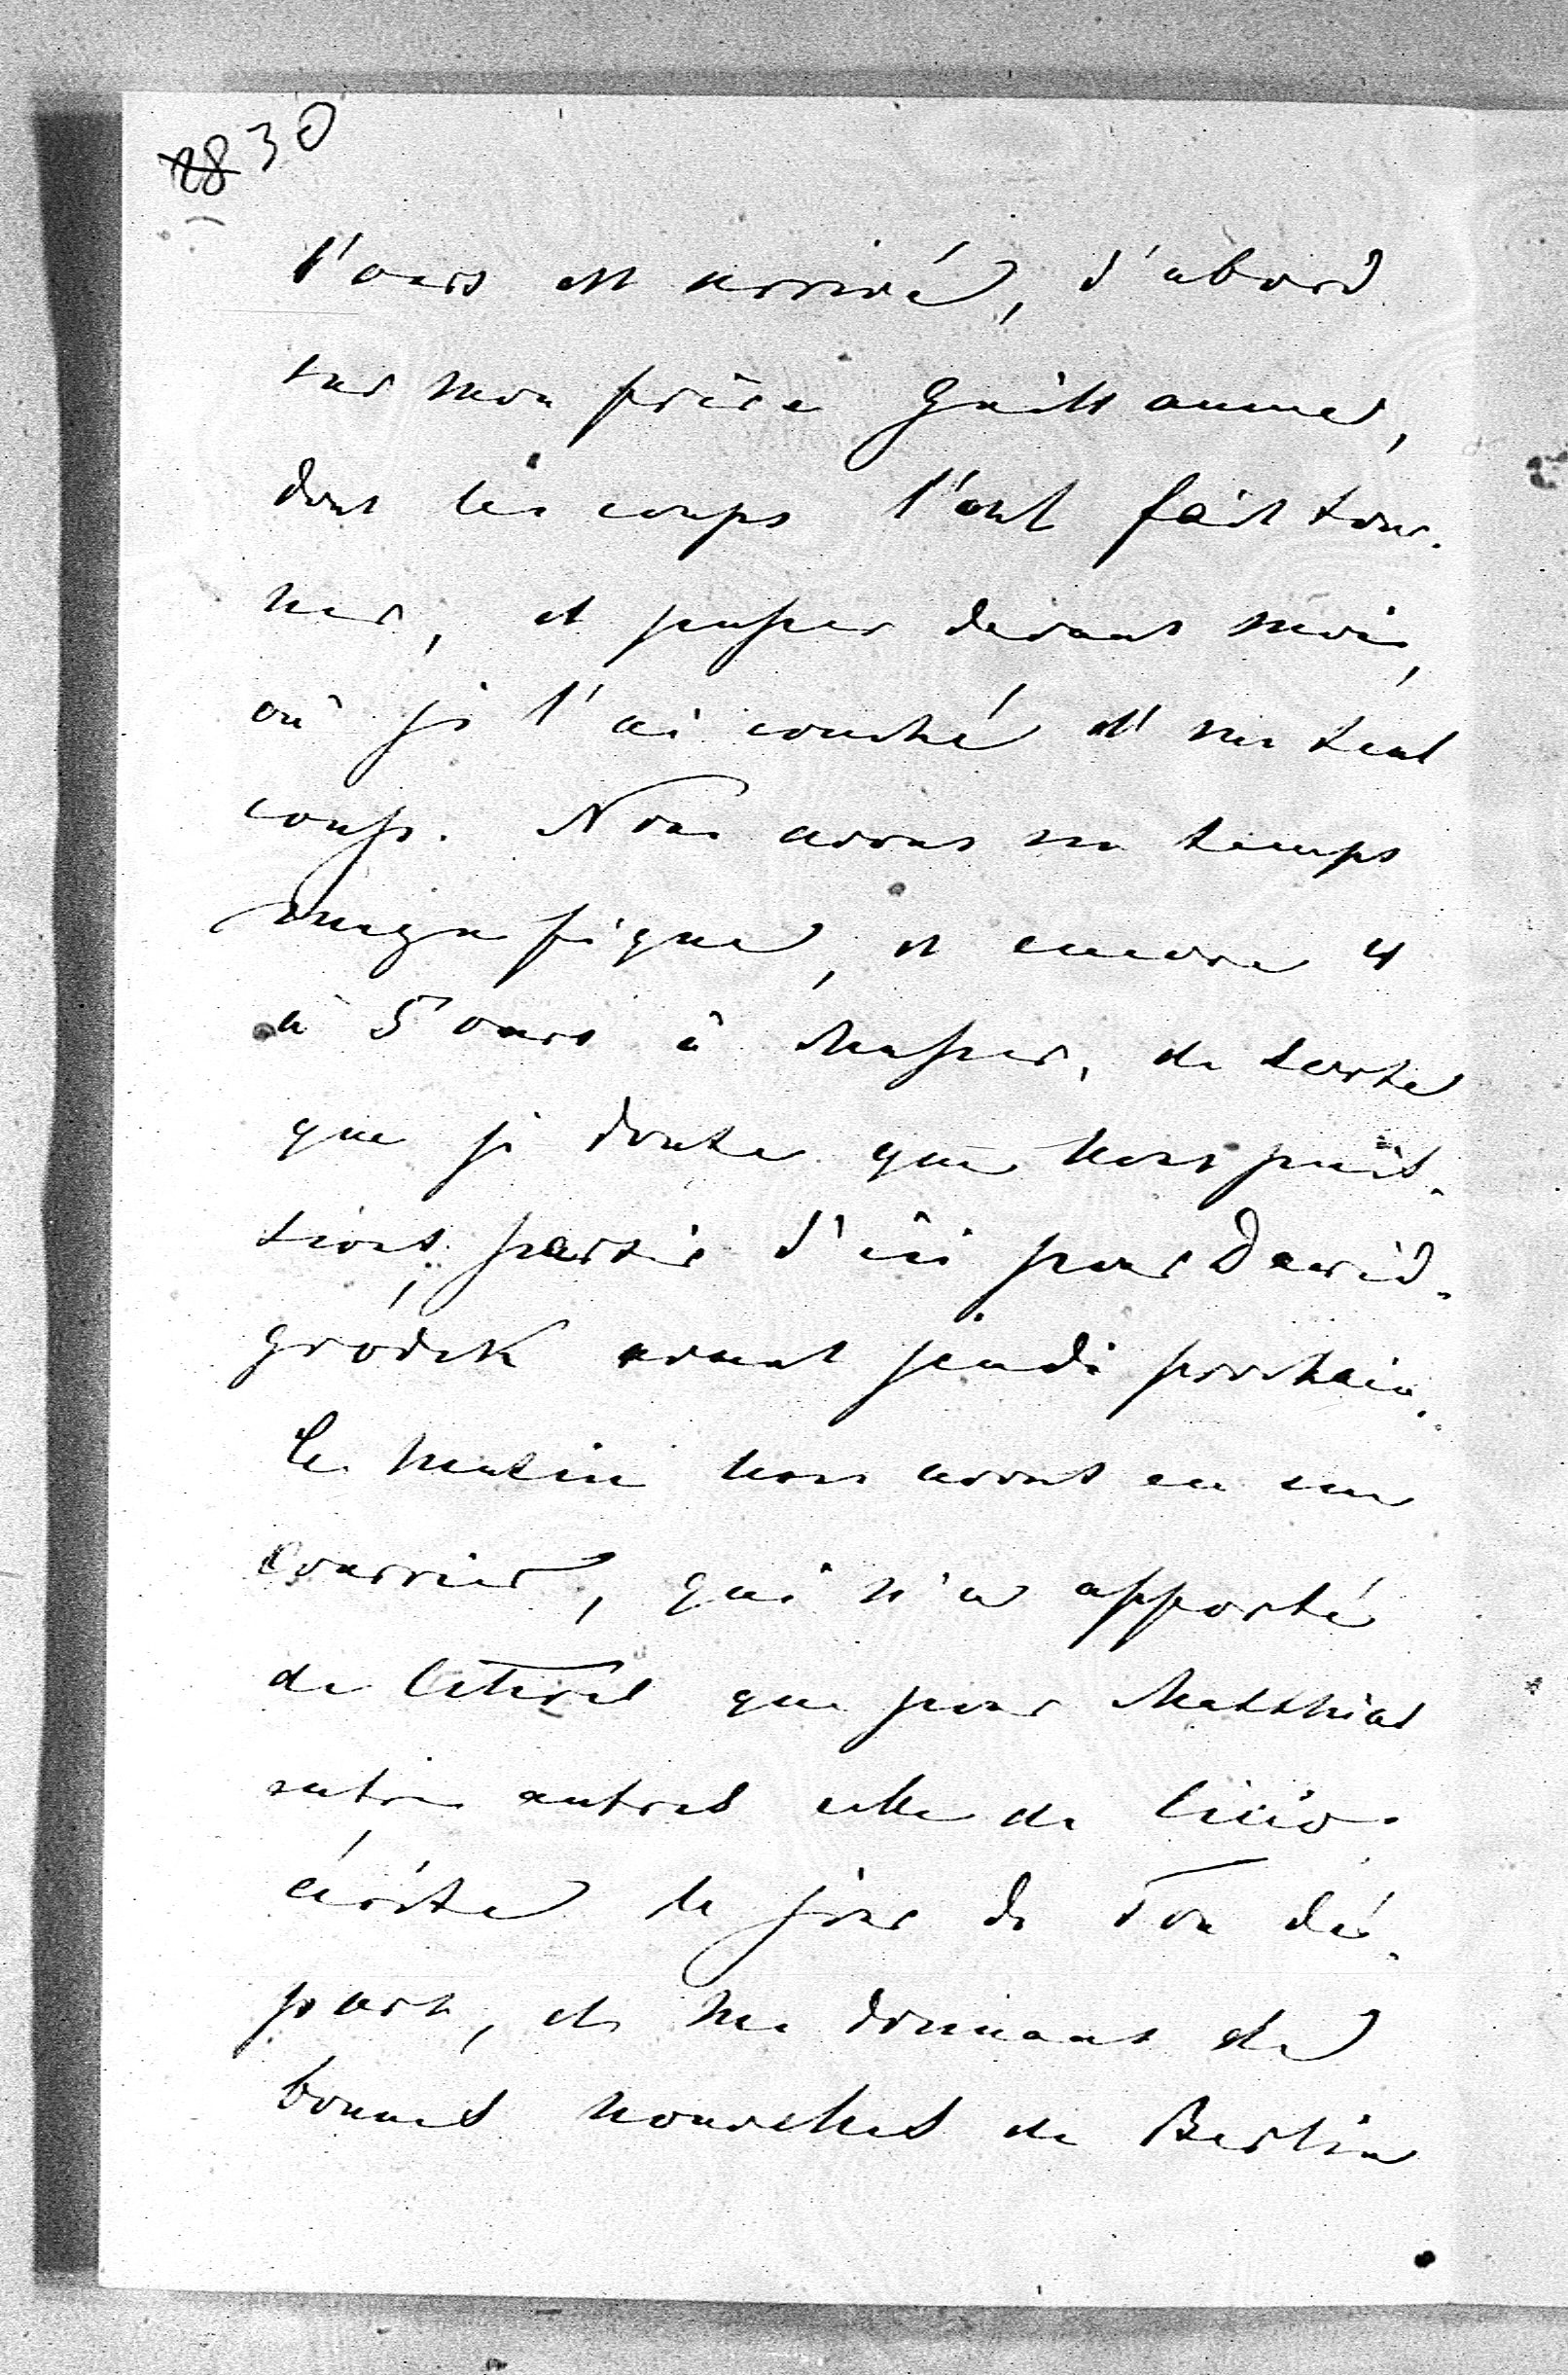 28 30
l'ours est arrivé, d'abord
sur mon frère Guillaume,
dont les coups l'ont fait tour-
ner, et passer devant moi,
où je l'ai couché d'un seul
coup. Nous avons un temps
magnifique, et encore 4
à 5 ours à chasser, de sorte
que je doute que nous puis-
sions partir d'ici pour David-
gródek avant jeudi prochain.
Ce matin nous avons eu un
courrier, qui n'a apporté
de lettres que pour Matthias
entre autres celle de
écrite le jour de Ton dé-
part, et me donnant de
bonnes nouvelles de Berlin